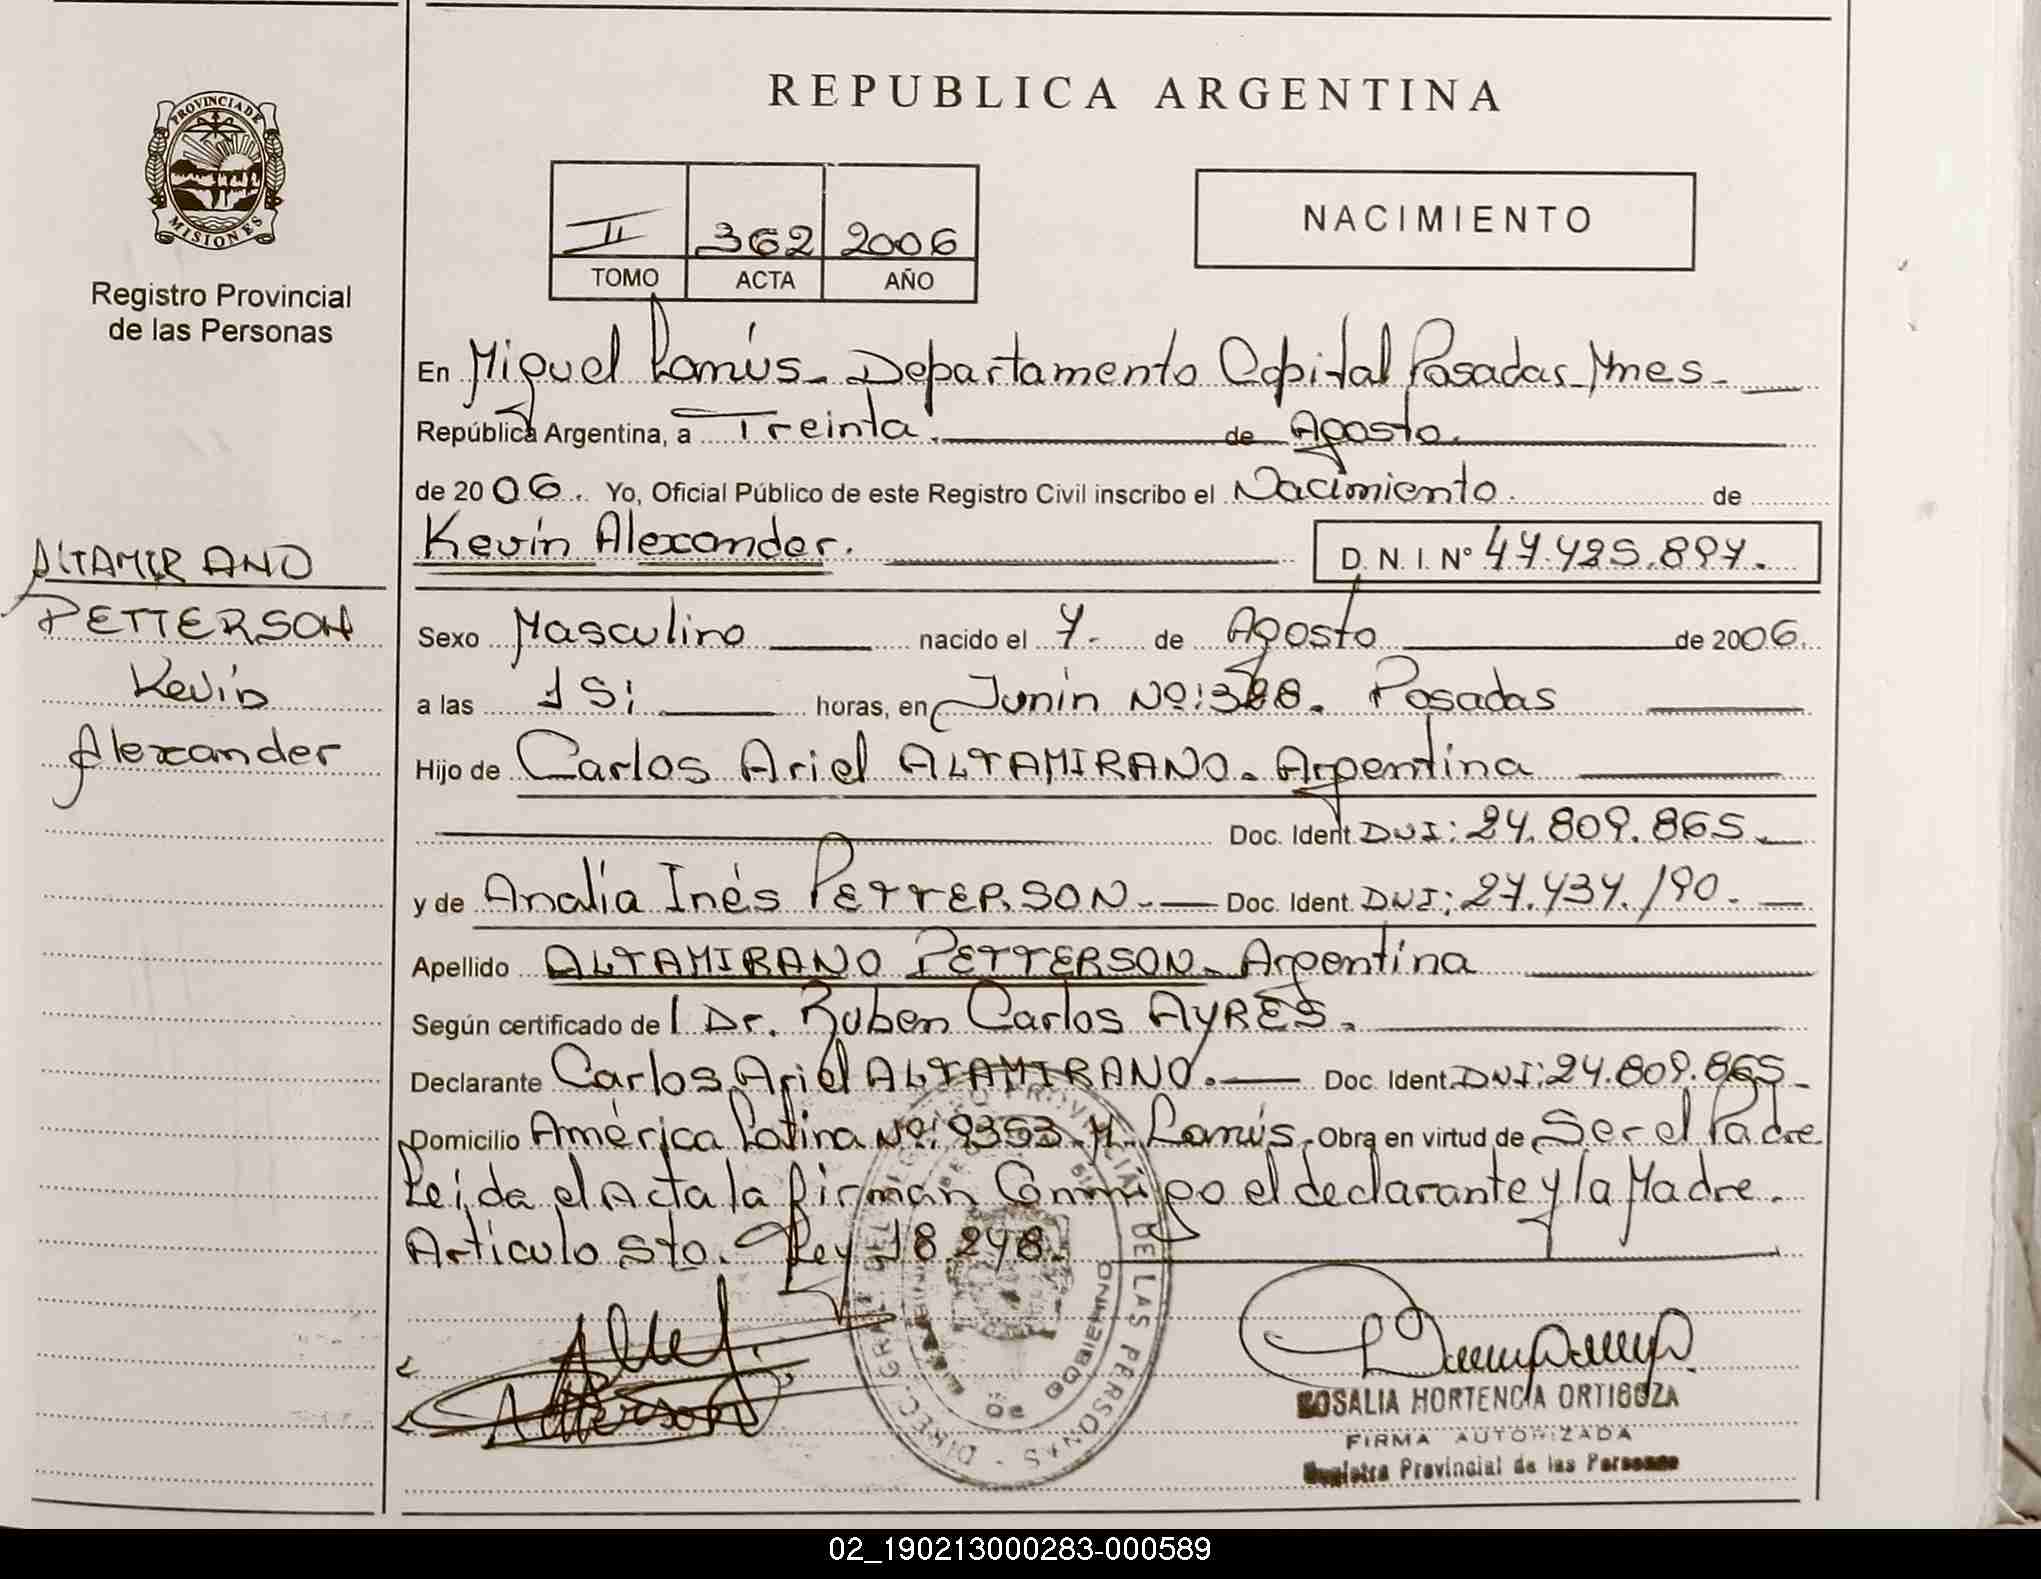 PROVINCIA DE
MISIONES
Registro Provincial
de las Personas
ALTAMIRANO
PETTERSON
Kevin
Alexander
REPUBLICA ARGENTINA
II 362 2006
TOMO ACTA AÑO
NACIMIENTO
En Miguel Lanús - Departamento Capital Posadas Mnes -
República Argentina, a Treinta. de Agosto.
de 2006. Yo, Oficial Público de este Registro Civil inscribo el Nacimiento. de
Kevin Alexander. D. N. I. Nº 47.425.897.
Sexo Masculino nacido el 7. de Agosto de 2006.
a las 15; horas, en Junín Nº: Posadas
Hijo de Carlos Ariel ALTAMIRANO. Argentina
Doc. Ident. DNI: 24.809.865.
y de Analía Inés PETTERSON. Doc. Ident. DNI: 27.437.190.
Apellido ALTAMIRANO PETTERSON. Argentina
Según certificado del Dr. Ruben Carlos AYRES.
Declarante Carlos Ariel ALTAMIRANO. Doc. Ident. DNI: 24.809.865
Domicilio América Latina Nº: 9353 M. Lanús. Obra en virtud de Ser el Padre
Leída el Acta la firman Conmigo el declarante y la Madre.
Artículo 5to. Ley 18.248.
DIREC. GRAL. DEL REGISTRO PROVINCIAL DE LAS PERSONAS
DE GOBIERNO
ROSALIA HORTENCIA ORTIGOZA
FIRMA AUTORIZADA
Registro Provincial de las Personas
02_190213000283-000589